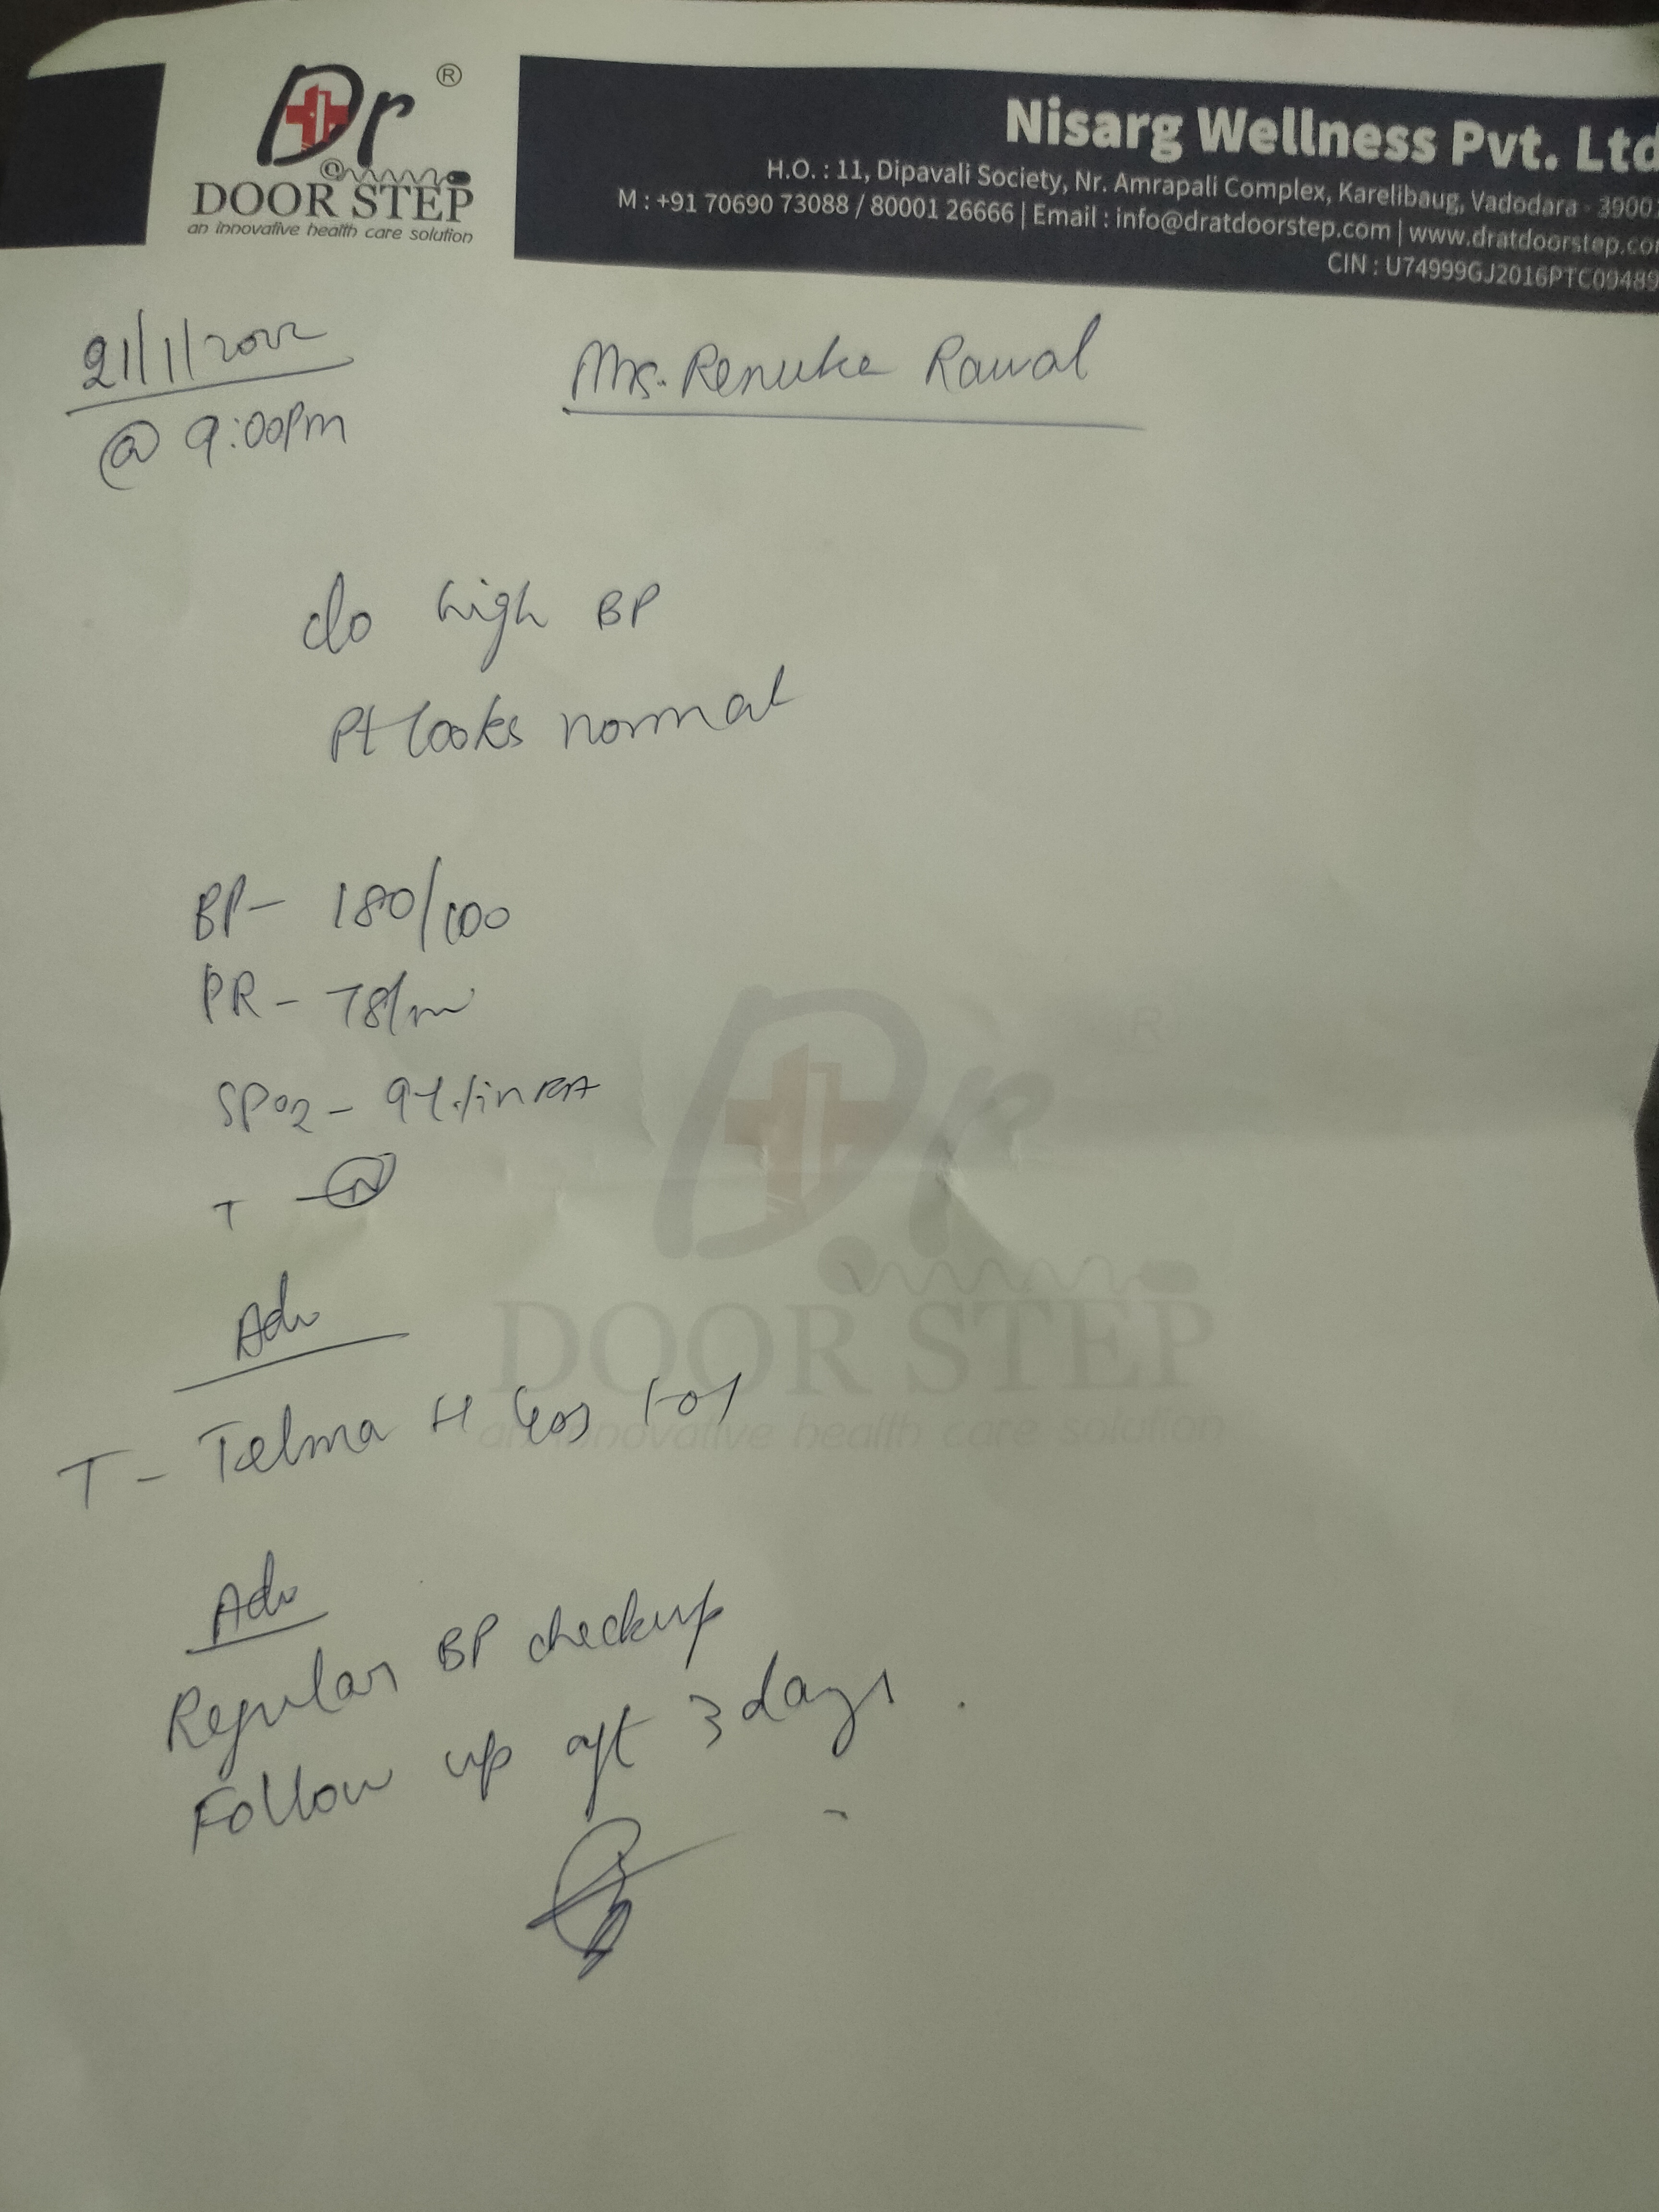 Dr ®
@
DOOR STEP
an innovative health care solution
Nisarg Wellness Pvt. Ltd
H.O. : 11, Dipavali Society, Nr. Amrapali Complex, Karelibaug, Vadodara - 3900
M : +91 70690 73088 / 80001 26666 | Email : info@dratdoorstep.com | www.dratdoorstep.co
CIN : U74999GJ2016PTC09489
21/1/2022
@ 9:00Pm
Mrs. Renuka Rawal
c/o high BP
Pt looks normal
BP- 180/100
PR - 78/m
SPO2 - in RA
T - N
Adv
T - Telma H 1-0-1
Adv
Regular BP checkup
Follow up aft 3 days.
Dr
DOOR STEP
an innovative health care solution